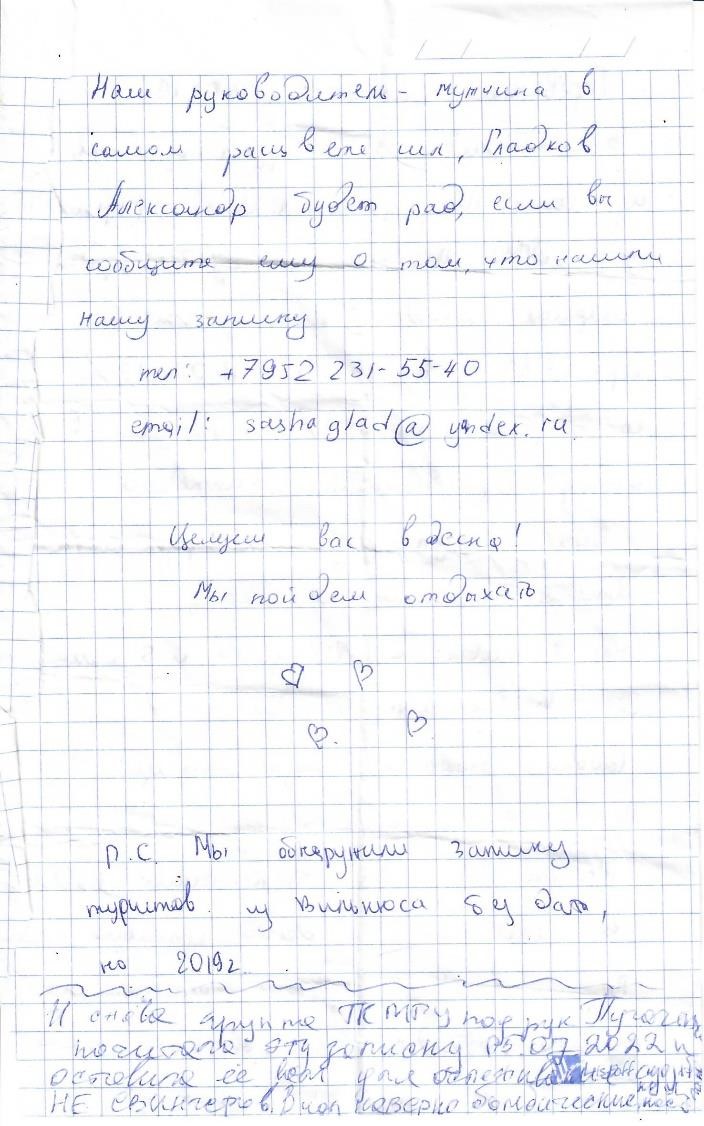 Наш руководитель - мужчина в
самом расцвете сил, Гладков
Александр будет рад, если вы
сообщите ему о том, что нашли
нашу записку
тел: +7952 231-55-40
email: sashaglad@yndex.ru
Целуем вас в десна!
Мы пойдем отдыхать
P.S. Мы обнаружили записку
туристов из Вильнюса без даты,
но 2019г.
И снова группа ТК МГУ под рук
почитала эту записку 05.07.2022 и
оставила ее
НЕ свингеров. В них наверно бомбические